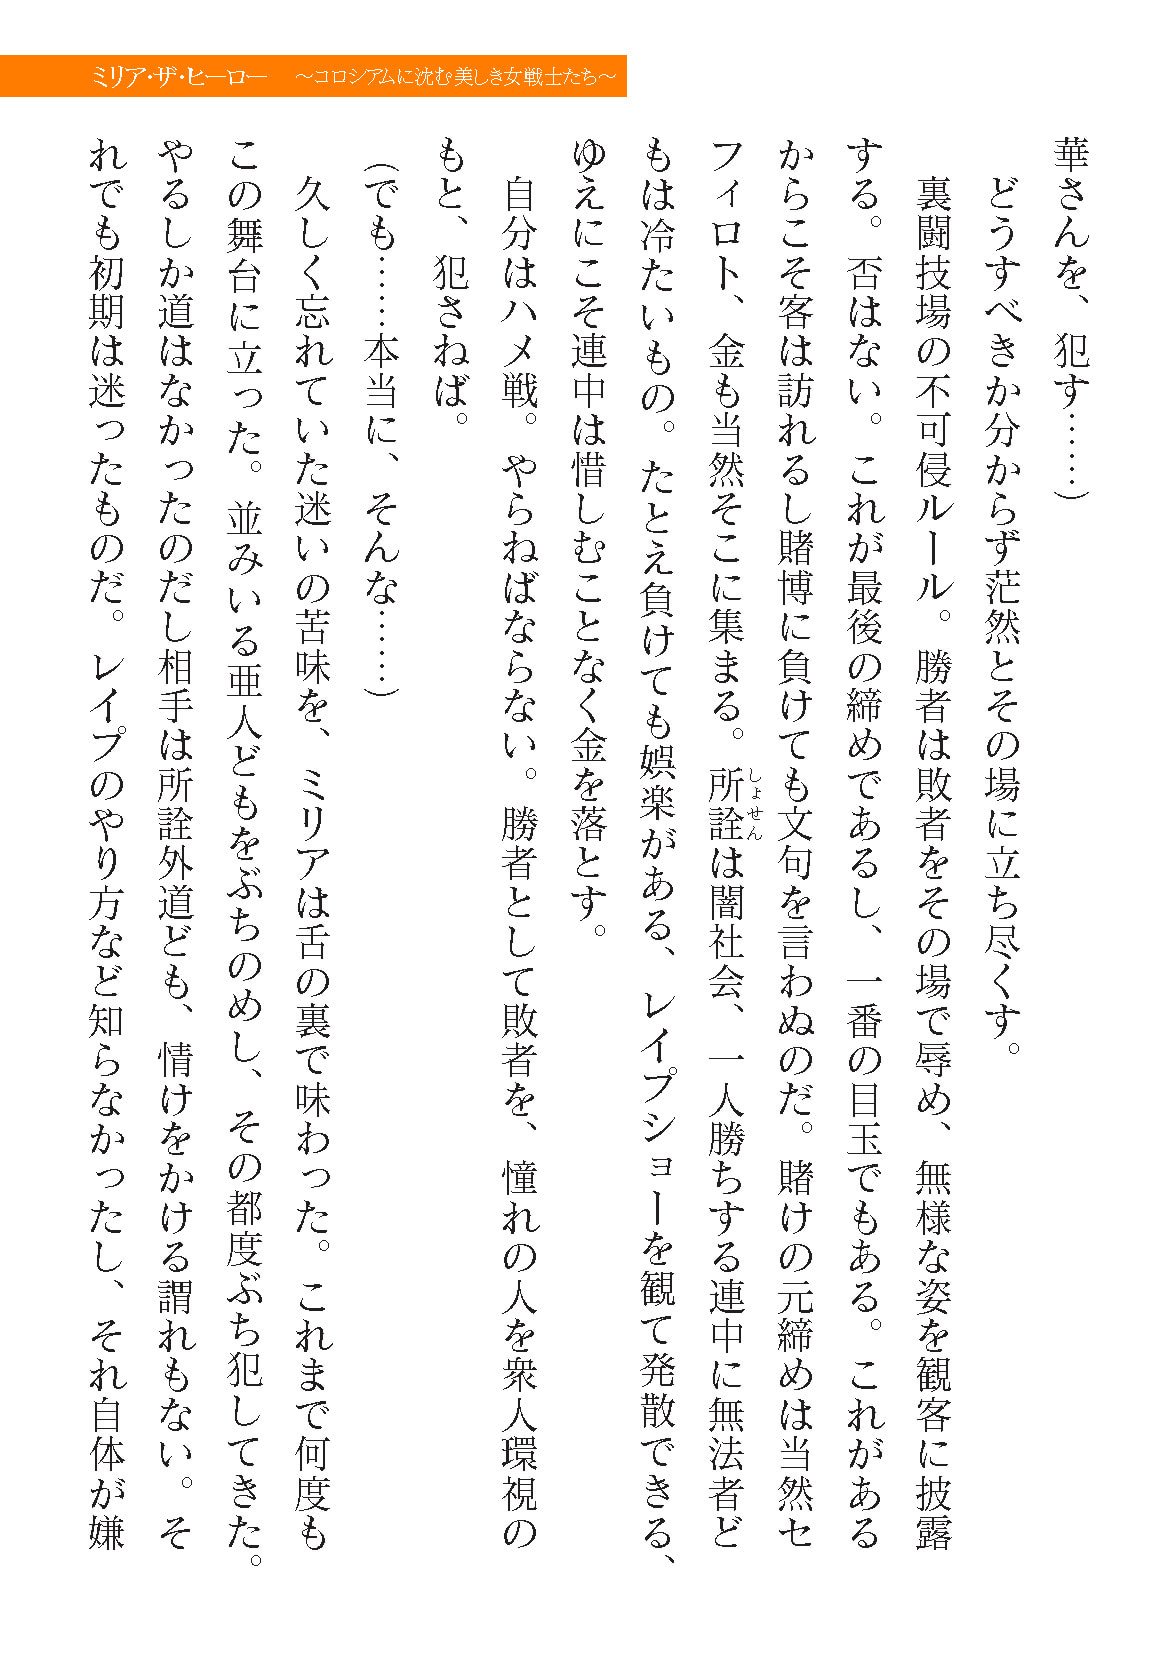 ミリア・ザ・ヒーロー　～コロシアムに沈む美しき女戦士たち～
華さんを、犯す……）
　どうすべきか分からず茫然とその場に立ち尽くす。
　裏闘技場の不可侵ルール。勝者は敗者をその場で辱め、無様な姿を観客に披露
する。否はない。これが最後の締めであるし、一番の目玉でもある。これがある
からこそ客は訪れるし賭博に負けても文句を言わぬのだ。賭けの元締めは当然セ
フィロト、金も当然そこに集まる。所詮は闇社会、一人勝ちする連中に無法者ど
しょせん
もは冷たいもの。たとえ負けても娯楽がある、レイプショーを観て発散できる、
ゆえにこそ連中は惜しむことなく金を落とす。
　自分はハメ戦。やらねばならない。勝者として敗者を、憧れの人を衆人環視の
もと、犯さねば。
（でも……本当に、そんな……）
　久しく忘れていた迷いの苦味を、ミリアは舌の裏で味わった。これまで何度も
この舞台に立った。並みいる亜人どもをぶちのめし、その都度ぶち犯してきた。
やるしか道はなかったのだし相手は所詮外道ども、情けをかける謂れもない。そ
れでも初期は迷ったものだ。レイプのやり方など知らなかったし、それ自体が嫌